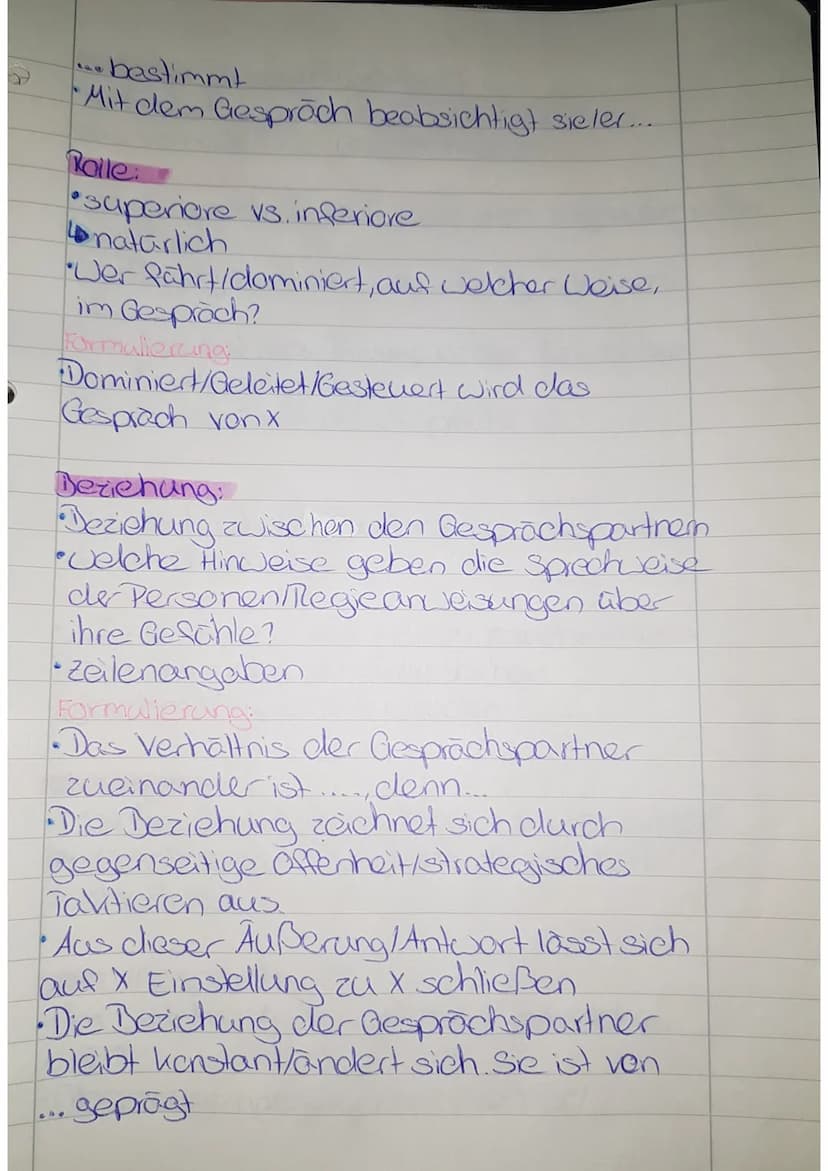 ... bestimmt
• Mit dem Gespräch beabsichtigt sie/er...
Rolle:
• superiore vs. inferiore
↳ natürlich
• Wer führt/dominiert, auf welcher Weise,
im Gespräch?
Formulierung:
• Dominiert/Geleitet/Gesteuert wird das
Gespräch von x
Beziehung:
• Beziehung zwischen den Gesprächspartnern
• Welche Hinweise geben die Sprechweise
der Personen/Regieanweisungen über
ihre Gefühle?
• Zeilenangaben
Formulierung:
• Das Verhältnis der Gesprächspartner
zueinander ist ...., denn...
• Die Beziehung zeichnet sich durch
gegenseitige Offenheit/strategisches
Taktieren aus.
• Aus dieser Äußerung/Antwort lässt sich
auf X Einstellung zu X schließen
• Die Beziehung der Gesprächspartner
bleibt konstant/ändert sich. Sie ist von
... geprägt